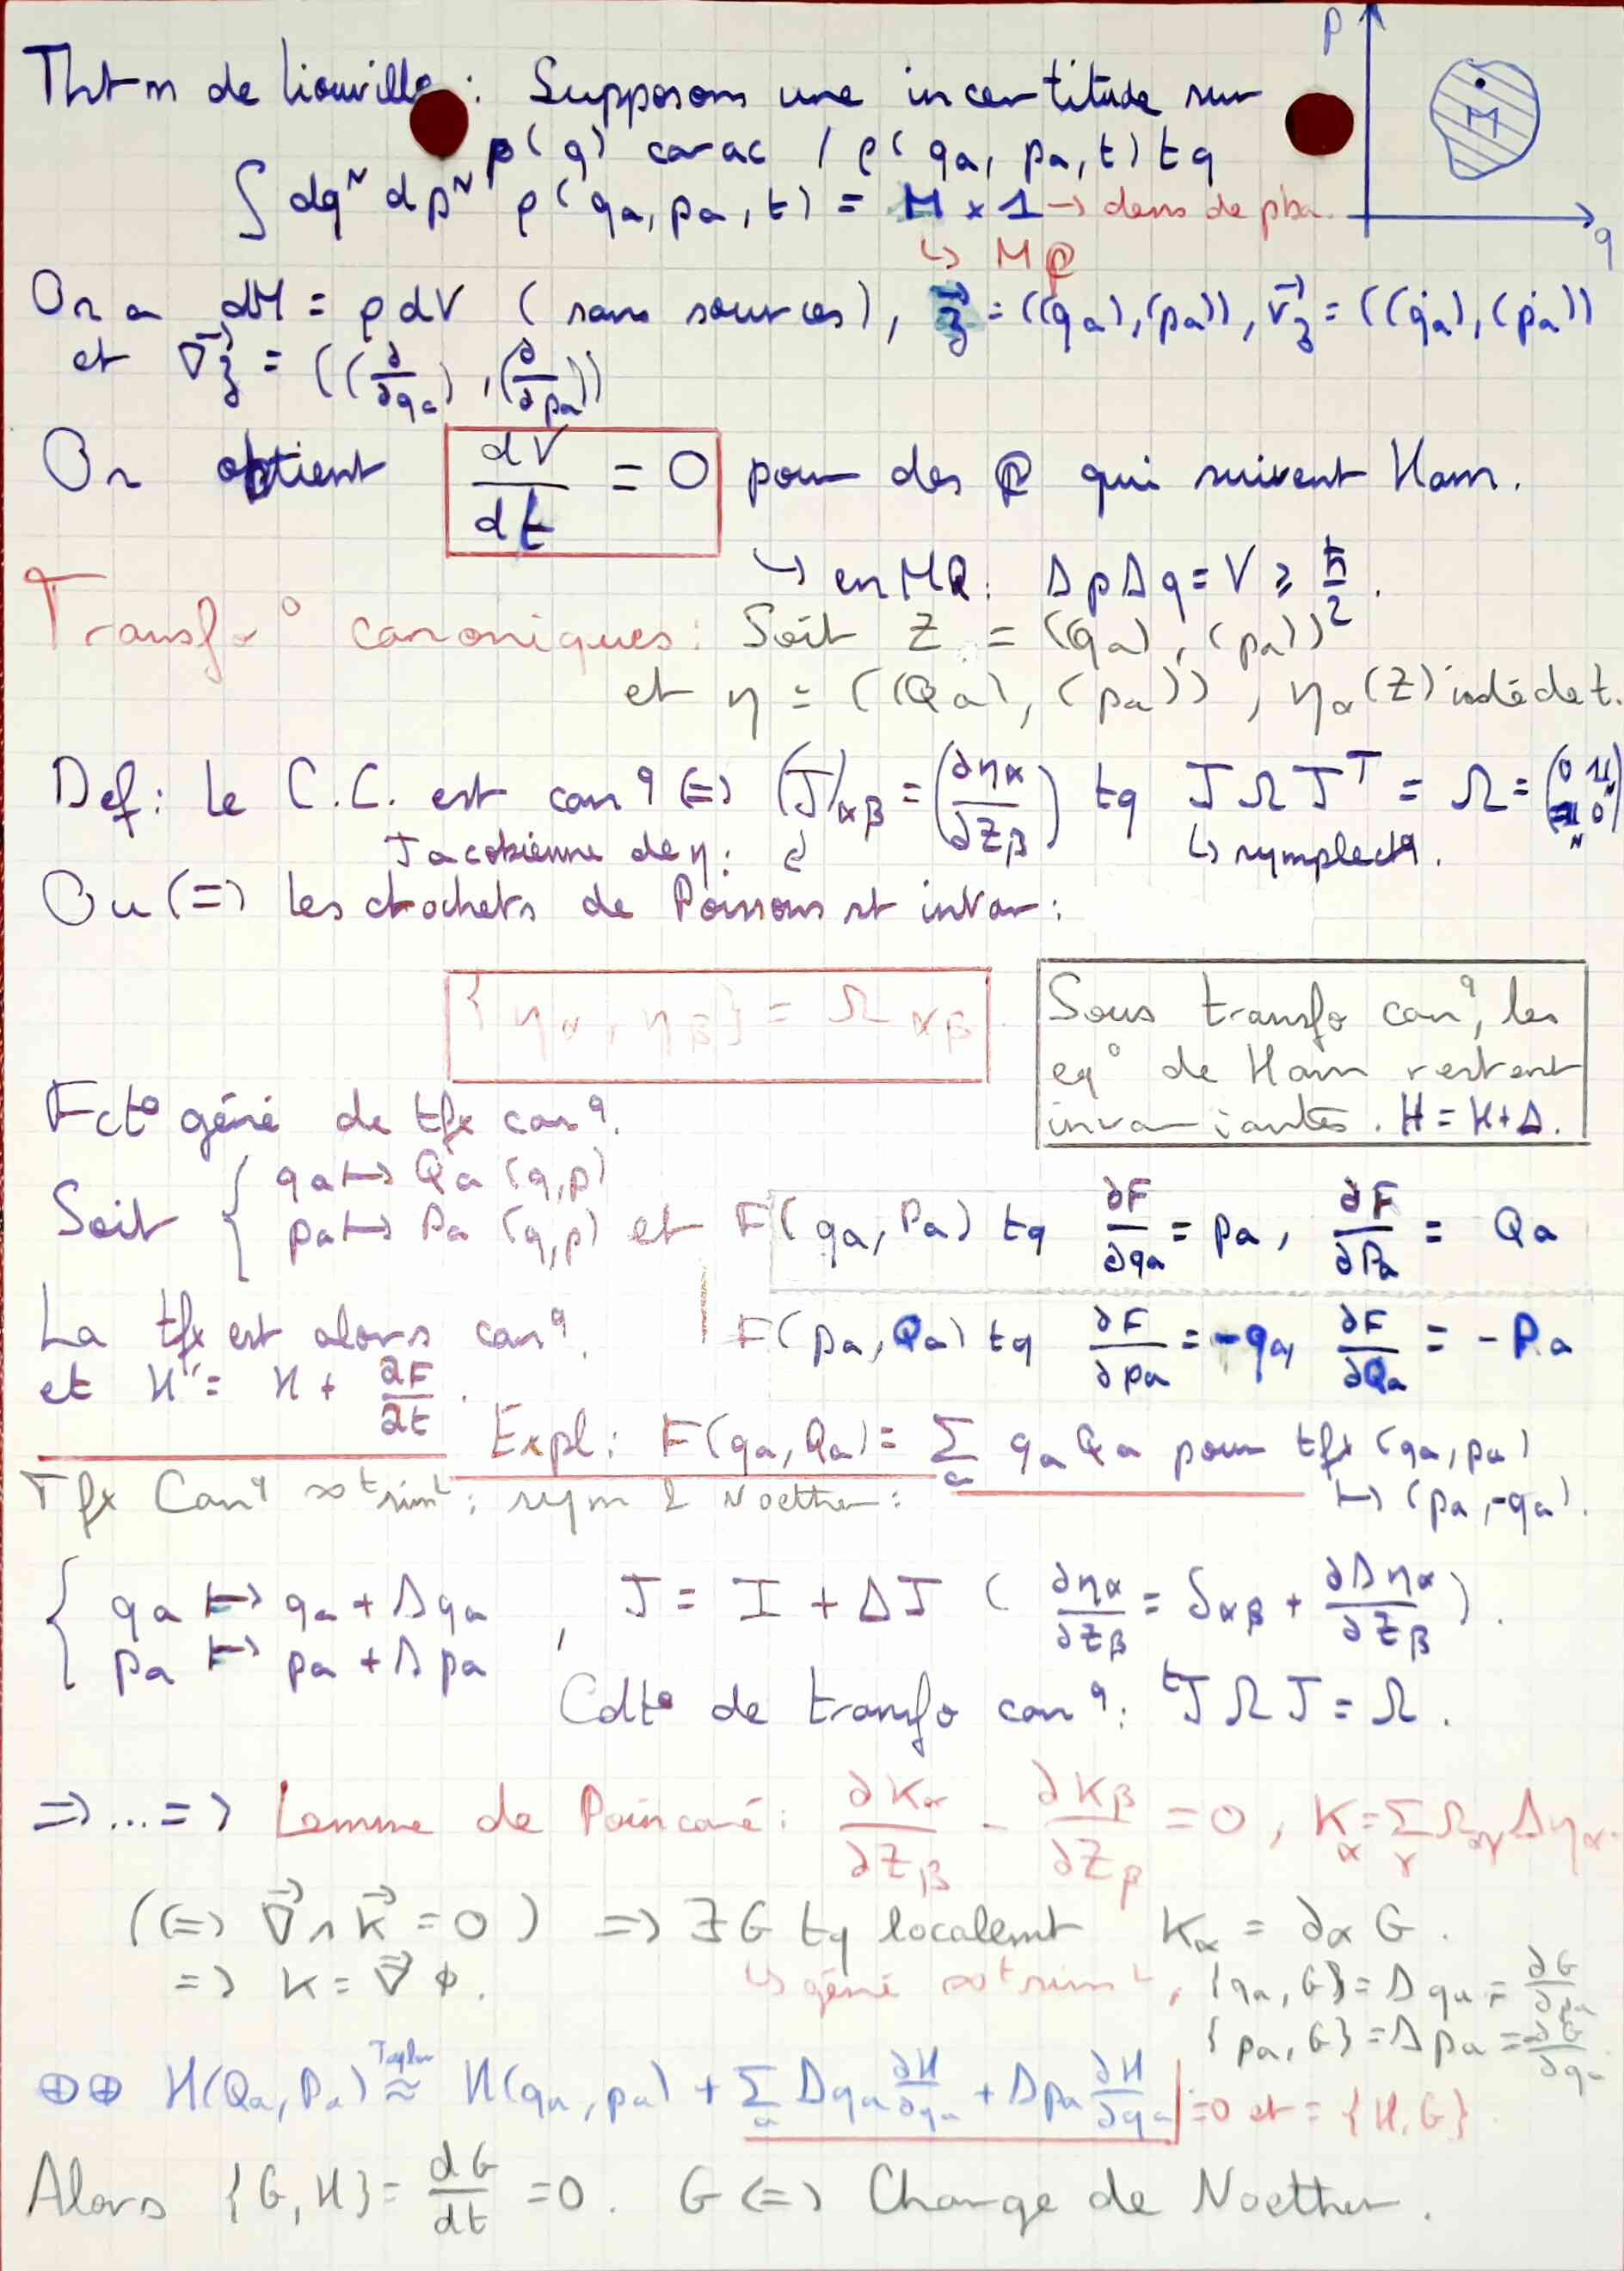 Thm de Liouville : Supposons une incertitude sur
p(q) carac / ρ(qa, pa, t) tq
∫ dq^N dp^N ρ(qa, pa, t) = M × 1 → dens de pba.
↳ M
p
M
q
On a dM = ρ dV (sans sources), z⃗ = ((qa), (pa)), v⃗z = ((q̇a), (ṗa))
et ∇⃗z = ((∂/∂qa), (∂/∂pa))
On obtient dV/dt = 0 pour des qui suivent Ham.
↳ en MQ : Δp Δq = V ≥ ħ/2.
Transfo° canoniques : Soit Z = (qa), (pa))
et η = ((Qa), (pa)), ηα(Z) indé de t.
Def : le C.C. est can^q (=) (J)αβ = (∂ηα/∂Zβ) tq J Ω J^T = Ω = (0 1_N -1_N 0)
Jacobienne de η : ↲ ↳ symplect^q.
Ou (=) les crochets de Poissons st invar :
{ηα, ηβ} = Ωαβ
Sous transfo can^q, les
eq° de Ham restent
invariantes. H = H + Δ.
Fct° géné de tfx can^q.
Soit { qa ↦ Qa (q,p)
pa ↦ Pa (q,p) et F(qa, Pa) tq ∂F/∂qa = pa, ∂F/∂Pa = Qa
La tfx est alors can^q. F(pa, Qa) tq ∂F/∂pa = -qa, ∂F/∂Qa = -Pa
et H' = H + ∂F/∂t.
Expl : F(qa, Qa) = Σa qa Qa pour tfx (qa, pa)
↦ (pa, -qa).
Tfx Can^q ∞^t sim^l : sym & Noether :
{ qa ↦ qa + Δqa
pa ↦ pa + Δpa , J = I + ΔJ ( ∂ηα/∂Zβ = δαβ + ∂Δηα/∂Zβ ).
Cdt° de transfo can^q : ^tJ Ω J = Ω.
=> ... => Lemme de Poincaré : ∂Kα/∂Zβ - ∂Kβ/∂Zβ = 0, Kα = Σγ Ωαγ Δηα.
((=) ∇⃗ ∧ K⃗ = 0) => ∃ G tq localemt Kα = ∂α G.
=> K = ∇⃗ φ. ↳ géné ∞^t sim^l, {qa, G} = Δqa = ∂G/∂pa
{pa, G} = Δpa = -∂G/∂qa
⊕⊕ H(Qa, Pa) ≈ (Taylor) H(qa, pa) + Σa Δqa ∂H/∂qa + Δpa ∂H/∂qa = 0 et = {H, G}.
Alors {G, H} = dG/dt = 0. G (=) Charge de Noether.